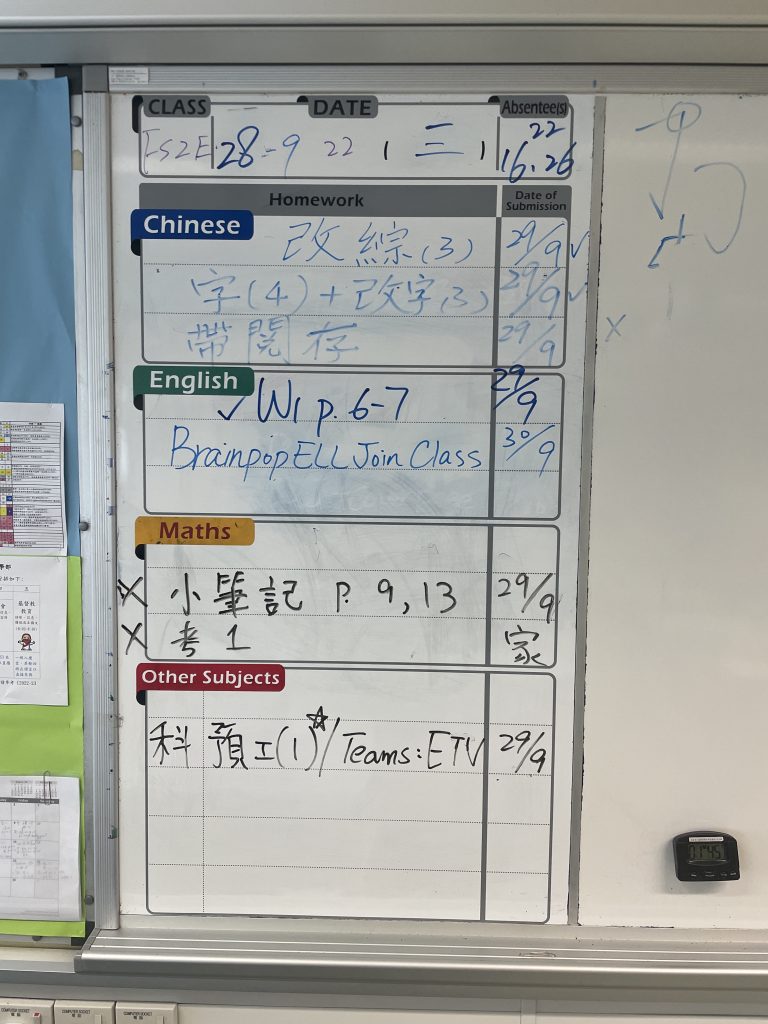 CLASS DATE Absentee(s)
28-9 22 (三) 22
16.26
Homework Date of Submission
Chinese
改綜(3) 29/9 ✓
字(4)+改字(3) 29/9 ✓
帶閱存 29/9
English
✓ W1 p. 6-7 29/9
Brainpop ELL Join Class 30/9
Maths
X 小筆記 P. 9, 13 29/9
X 考1 家
Other Subjects
科 預工(1)☆/Teams: ETV 29/9
X
基督教
教育
COMPUTER SOCKET
COMPUTER SOCKET
COMPUTER SOCKET